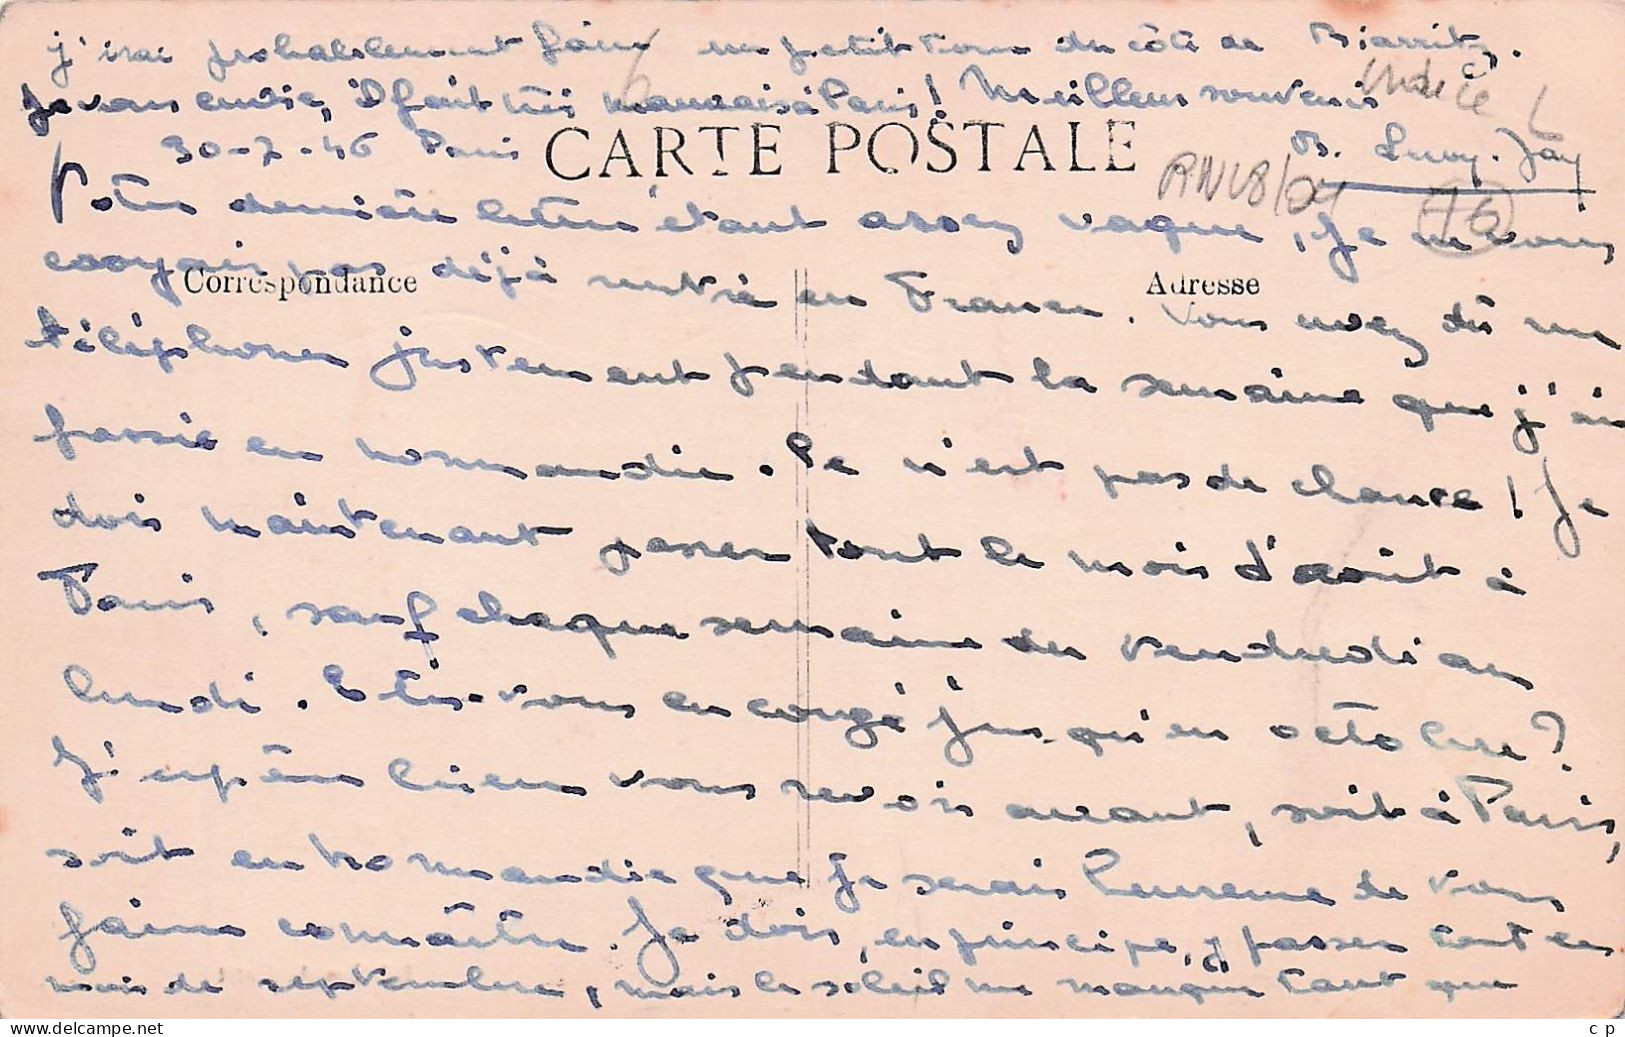 j'irai probablement faire un petit tour du côté de Biarritz.
Je vous envie, il fait très mauvais à Paris! Meilleurs souvenirs
30-7-46 Paris
CARTE POSTALE
B.
RNV8/04
Votre dernière lettre étant assez vague, je ne vous
croyais pas déjà rentré en France. Vous avez dû me
Correspondance
Adresse
téléphoner justement pendant la semaine que j'ai
passée en Normandie. Ce n'est pas de chance! Je
dois maintenant passer tout le mois d'août à
Paris, sauf chaque semaine du vendredi au
lundi. Etes-vous en congé jusqu'en octobre?
J'espère bien vous revoir avant, soit à Paris,
soit en Normandie que je serais heureuse de vous
faire connaître. Je dois, en principe, y passer tout le
mois de septembre, mais le soleil me manque tant que